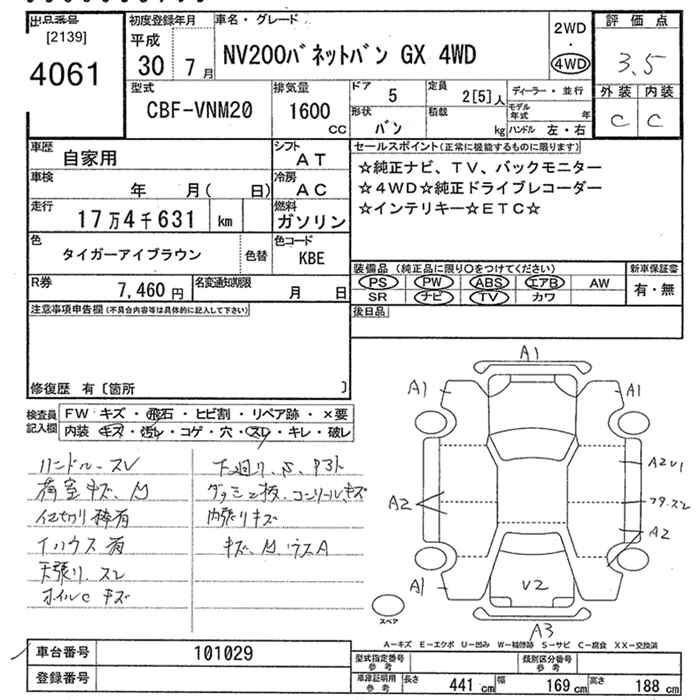 出品番号
[2139]
4061
初度登録年月
平成
30 7月
車名・グレード
NV200バネットバン GX 4WD
2WD
・
4WD
評価点
3.5
外装 内装
C C
型式
CBF-VNM20
排気量
1600
CC
ドア 5
定員 2[5]人
ディーラー・並行
形状 バン
積載 kg
モデル年式 年
ハンドル 左・右
車歴 自家用
シフト AT
車検 年 月( 日)
冷房 AC
走行 17万4千631 km
燃料 ガソリン
色 タイガーアイブラウン 色替
色コード KBE
R券 7,460円
名変通知期限 月 日
セールスポイント(正常に機能するものに限ります)
☆純正ナビ、TV、バックモニター
☆4WD☆純正ドライブレコーダー
☆インテリキー☆ETC☆
装備品(純正品に限り〇をつけてください)
新車保証書
PS PW ABS エアB AW
有・無
SR ナビ TV カワ
後日品
注意事項申告欄(不具合内容等は具体的に記入して下さい)
修復歴 有〔箇所 〕
検査員記入欄
FW キズ・飛石・ヒビ割・リペア跡・×要
内装 キズ・汚レ・コゲ・穴・スレ・キレ・破レ
ハンドル、スレ
荷室キズ、M
イハウス有
天張り、スレ
ホイルC キズ
内張りキズ
A1
A1
A1
A2
A2
A2
A1
V2
A3
スペア
A－キズ E－エクボ U－凹み W－補修跡 S－サビ C－腐食 XX－交換済
車台番号 101029
登録番号
型式指定番号 参考
類別区分番号 参考
車庫証明用 参考
長さ 441cm 幅 169cm 高さ 188cm